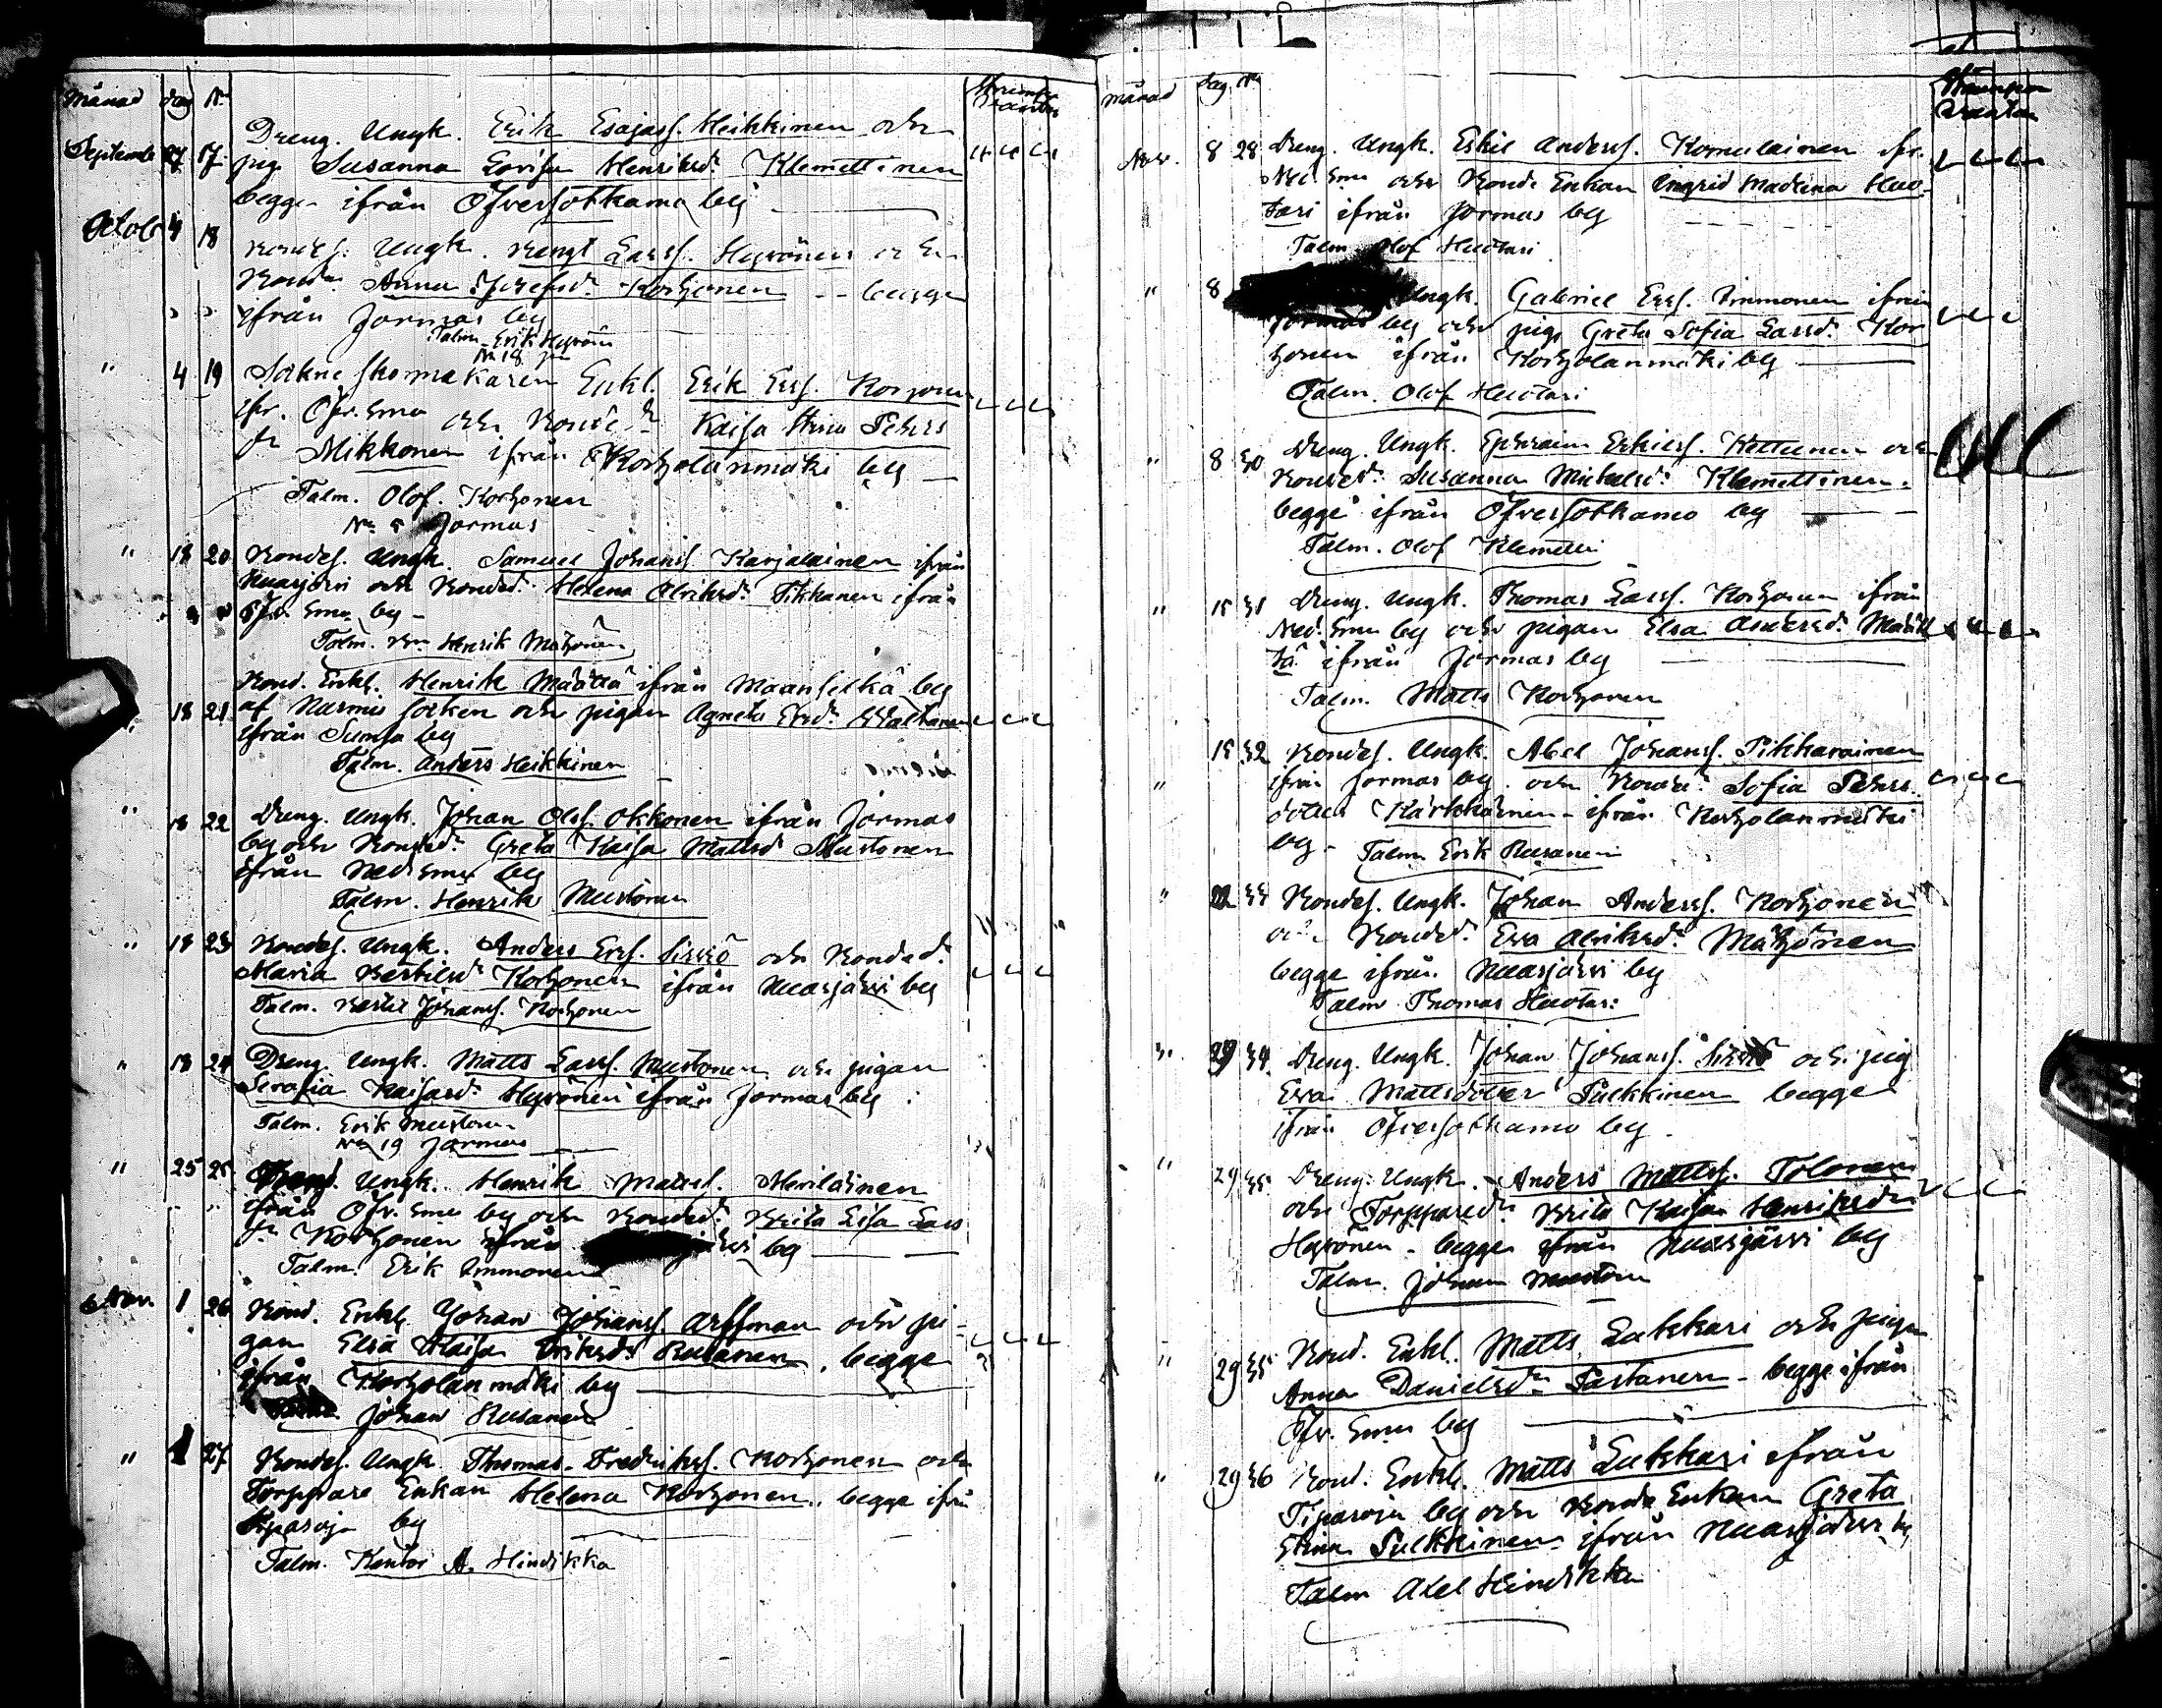 Månad dag No
Septemb 27 17 Dreng. Ungk. Erik Esajass. Heikkinen och
pig. Susanna Lovisa Henriksdr Klemettinen
begge ifrån Öfversotkamo by
Octob 4 18 Bondes. Ungk. Bengt Larss. Hyvönen och
Bonded. Anna Josefsdr Korhonen begge
ifrån Jormas by
Talm. Erik Hyvön
No 18
" 4 19 Sockne skomakaren Enkl. Erik Ers. Korhonen
ifr. Öfv. Sma och Bonded. Kaisa Stina Pehrs
dr Mikkonen ifrån Korholanmäki by
Talm. Olof Korhonen
No 5 Jormas
" 18 20 Bondes. Ungk. Samuel Johanss. Karjalainen ifrån
Nuasjärvi och Bonded. Helena Alriksdr Tikkanen ifrån
Öfv. Sma by
Talm. Bn Henrik Mähönen
" 18 21 Bond. Enkl. Henrik Määttä ifrån Maanselkä by
af Nurmis socken och pigan Agneta Ersdr
ifrån Sumsa by
Talm. Anders Heikkinen
" 18 22 Dreng. Ungk. Johan Olss. Okkonen ifrån Jormas
by och Bonded. Greta Kaisa Mattsd. Mustonen
ifrån Ned Sma by
Talm. Henrik Mustonen
" 18 23 Bondes. Ungk. Anders Ers. Sirviö och Bonded.
Maria Bertilsd. Korhonen ifrån Nuasjärvi by
Talm. Bertil Johanss. Korhonen
" 18 24 Dreng. Ungk. Matts Larss. Mustonen och pigan
Serafia Kaisasdr Hyvönen ifrån Jormas by
Talm. Erik Muston
No 19 Jormas
" 25 25 Ungk. Henrik Matts. Meriläinen
ifrån Öfv. Sma by och Bonded. Brita Lisa Lars
dr Korhonen ifrån by
Talm. Erik Immonen
Nov. 1 26 Bond. Enkl. Johan Johanss. Arffman och pi-
gan Elsa Kaisa Eriksdr Rusanen, begge
ifrån Korholanmäki by
Johan Rusanen
" 1 27 Bondes. Ungk. Thomas Fredrikss. Korhonen och
Torppare Enkan Helena Korhonen, begge ifrån
Tipasoja by
Talm. Kantor A. Hindikka
Månad Dag No
Nov. 8 28 Dreng. Ungk. Eskil Anderss. Komulainen ifr.
Ned Sma och Bonde Enkan Ingrid Madlena Huo-
tari ifrån Jormas by
Talm. Olof Huotari
" 8 Ungk. Gabriel Ers. Immonen ifrån
Jormas by och pig. Greta Sofia Larsdr Kor
honen ifrån Korholanmäki by
Talm. Olof Huotari
" 8 30 Dreng. Ungk. Ephraim Eskilss. Kettunen och
Bonded. Susanna Michelsdr Klemettinen.
begge ifrån Öfversotkamo by
Talm. Olof Klemetti
" 15 31 Dreng. Ungk. Thomas Larss. Korhonen ifrån
Ned. Sma by och pigan Elsa Andersdr Määt
tä ifrån Jormas by
Talm. Matts Korhonen
" 15 32 Bondes. Ungk. Abel Johanss. Pikkarainen
ifrån Jormas by och Bonded. Sofia Pehrs
dotter Kärkkäinen ifrån Korholanmäki
by - Talm. Erik Rusanen
" 22 33 Bondes. Ungk. Johan Anderss. Korhonen
och Bonded. Eva Alriksdr Mähönen
begge ifrån Nuasjärvi by
Talm Thomas Huotari
" 29 34 Dreng. Ungk. Johan Johanss. Sirviö och pig
Eva Mattsdotter Pulkkinen begge
ifrån Öfversotkamo by
" 29 35 Dreng. Ungk. Anders Mattss. Tolonen
och Torpparedr Brita Kaisa Henriksdr
Hyvönen - begge ifrån Nuasjärvi by
Talm. Johan Muston
" 29 35 Bond. Enkl. Matts Lukkari och pigan
Anna Danielsdr Partanen - begge ifrån
Öfv. Sma by
" 29 36 Bond. Enkl. Matts Lukkari ifrån
Tipasoja by och Bonde Enkan Greta
Stina Pulkkinen ifrån Nuasjärvi by
Talm Abel Hindikka